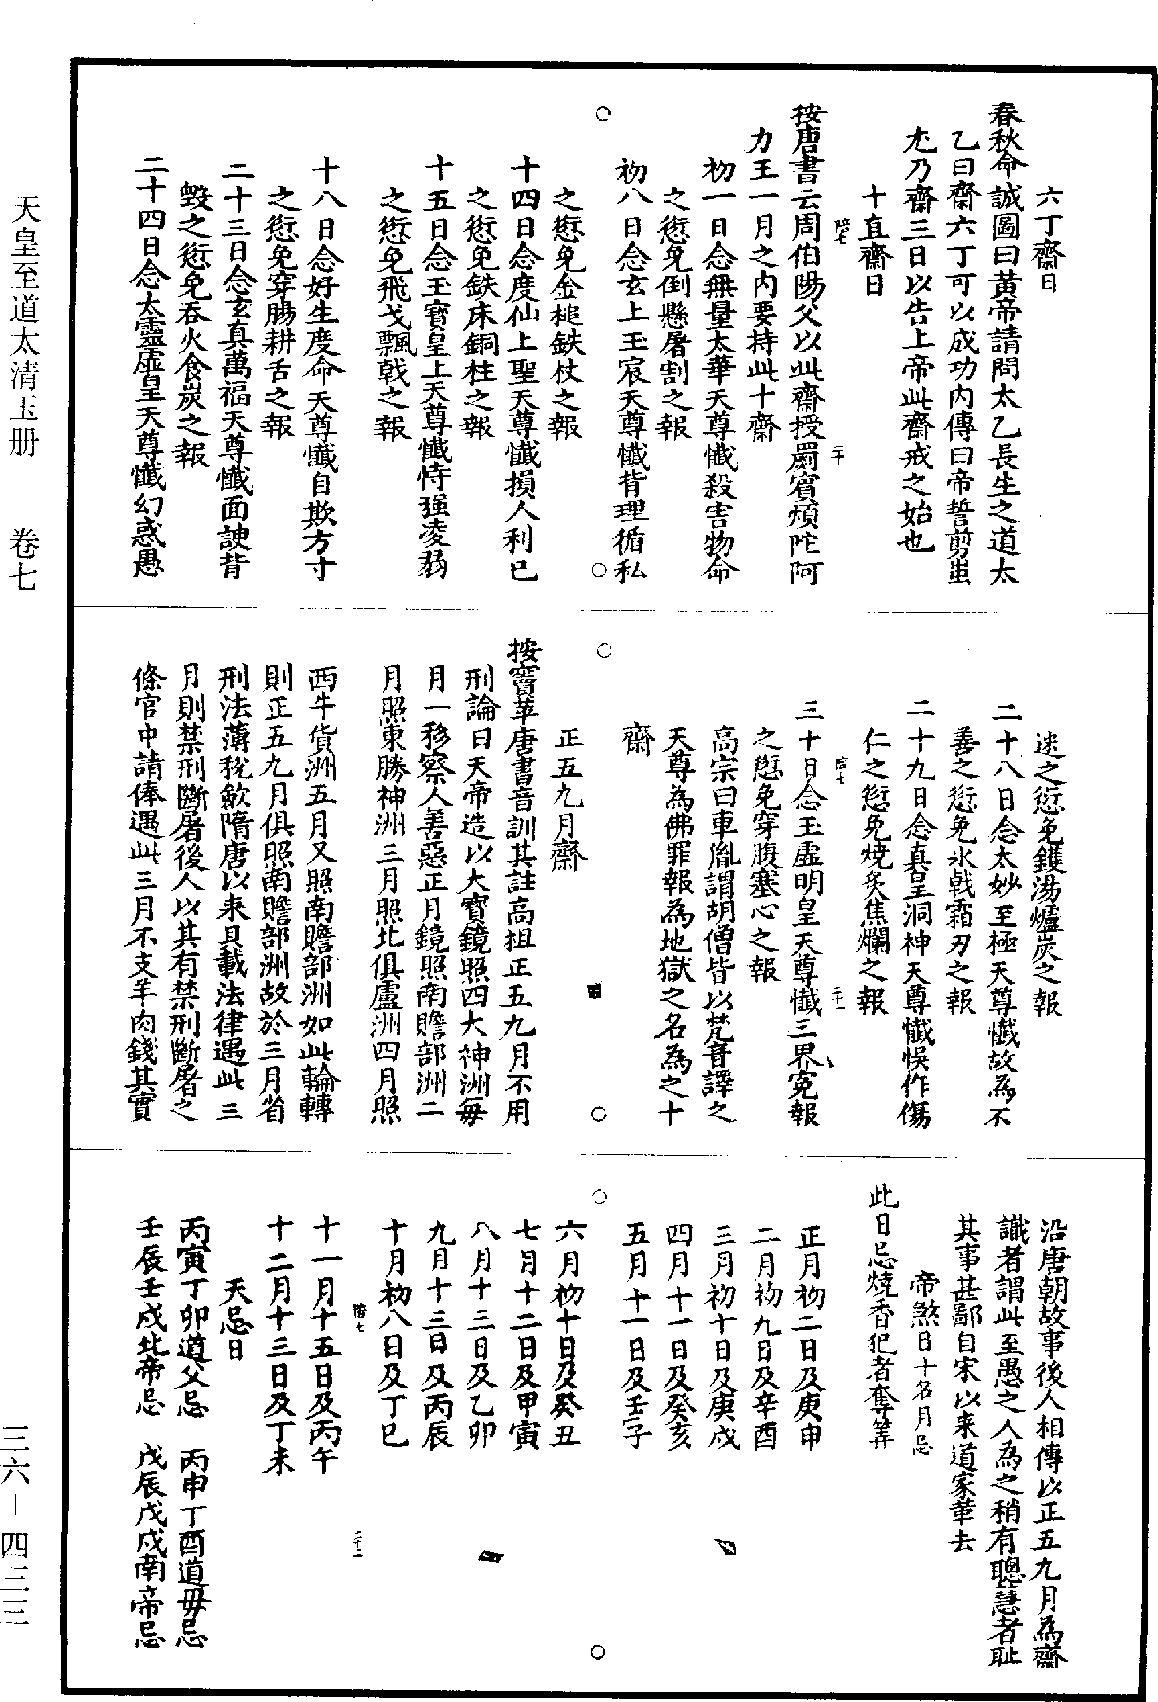 六丁齋日
春秋命誠圖曰黃帝請問太乙長生之道太
乙曰齋六丁可以成功內傳曰帝誓剪蚩
尤乃齋三日以告上帝此齋戒之始也
十直齋日
按唐書云周伯陽父以此齋授罽賓煩陀阿
力王一月之內要持此十齋
初一日念無量太華天尊懺殺害物命
之愆免倒懸屠割之報
初八日念玄上玉宸天尊懺背理循私
之愆免金槌鉄杖之報
十四日念度仙上聖天尊懺損人利己
之愆免鉄床銅柱之報
十五日念玉寶皇上天尊懺恃强凌弱
之愆免飛戈飄戟之報
十八日念好生度命天尊懺自欺方寸
之愆免穿腸耕舌之報
二十三日念玄真萬福天尊懺面諛背
毀之愆免吞火食炭之報
二十四日念太靈虛皇天尊懺幻惑愚
迷之愆免鑊湯爐炭之報
二十八日念太妙至極天尊懺故為不
善之愆免氷戟霜刃之報
二十九日念真皇洞神天尊懺悞作傷
仁之愆免燒炙焦爛之報
三十日念玉虛明皇天尊懺三界寃報
之愆免穿腹塞心之報
高宗曰車胤謂胡僧皆以梵音譯之
天尊為佛罪報為地獄之名為之十
齋
正五九月齋
按竇苹唐書音訓其註高祖正五九月不用
刑論曰天帝造以大寶鏡照四大神洲每
月一移察人善惡正月鏡照南贍部洲二
月照東勝神洲三月照北俱盧洲四月照
西牛貨洲五月又照南贍部洲如此輪轉
則正五九月俱照南贍部洲故於三月省
刑法薄稅歛隋唐以來具載法律遇此三
月則禁刑斷屠後人以其有禁刑斷屠之
條官中請俸遇此三月不支羊肉錢其實
沿唐朝故事後人相傳以正五九月為齋
識者謂此至愚之人為之稍有聰慧者耻
其事甚鄙自宋以來道家革去
帝煞日十名月忌
此日忌燒香犯者奪筭
正月初二日及庚申
二月初九日及辛酉
三月初十日及庚戌
四月十一日及癸亥
五月十一日及壬子
六月初十日及癸丑
七月十二日及甲寅
八月十三日及乙卯
九月十三日及丙辰
十月初八日及丁巳
十一月十五日及丙午
十二月十三日及丁未
天忌日
丙寅丁卯道父忌 丙申丁酉道毋忌
壬辰壬戌北帝忌 戊辰戊戌南帝忌
天皇至道太清玉册 卷七
三六－四三三